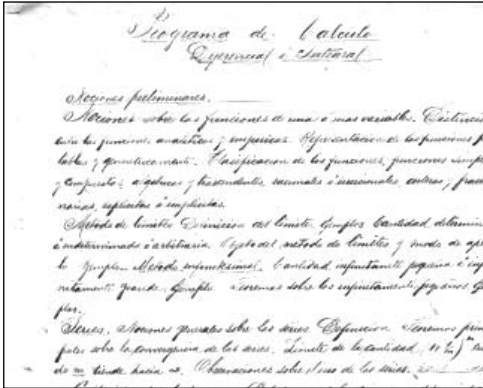 Programa de Calculo
Diferencial é Integral
Nociones preliminares.
Nociones sobre las funciones de una ó mas variables. Distincion
entre las funciones analíticas y empíricas. Representacion de las funciones p
tablas y geometricamente. Clasificacion de las funciones, funciones simples
y compuestas, algebraicas y trascendentes, racionales é irracionales, enteras y fraccio
narias, esplicitas é implicitas.
Método de límites Definicion del límite. Ejemplos Cantidad determin
é indeterminada ó arbitraria Objeto del método de límites y modo de apli
Ejemplos Método infinitesimal. Cantidad infinitamente pequeña é infi
nitamente grande. Ejemplo. Teoremas sobre los infinitamente pequeños. Ejem
plos.
Series. Nociones generales sobre las series. Definicion Teoremas princi
pales sobre la convergencia de las series. Límite de la cantidad
de m tiende hacia ∞. Observaciones sobre el uso de las series.